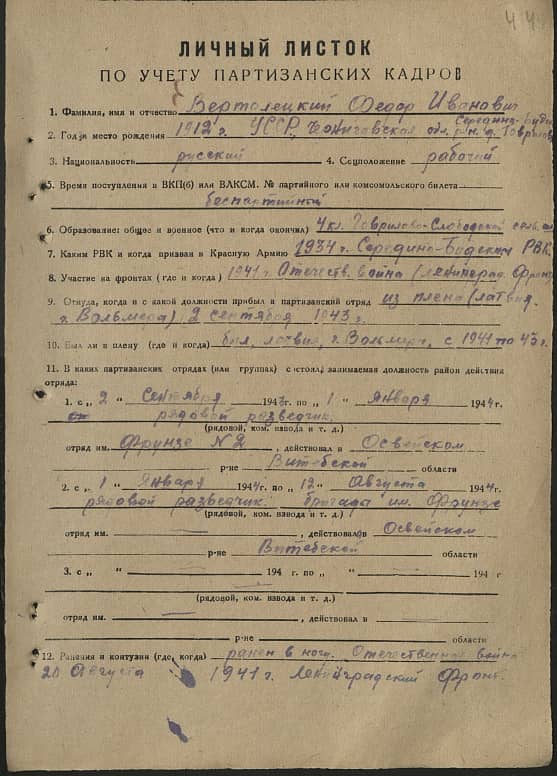 44
ЛИЧНЫЙ ЛИСТОК
ПО УЧЕТУ ПАРТИЗАНСКИХ КАДРОВ
1. Фамилия, имя и отчество Вертолецкий Федор Иванович
Середино-Буд
2. Год и место рождения 1912 г. УССР, Черниговская обл. р-н, д. Гаврилов
3. Национальность русский 4. Соцположение рабочий
5. Время поступления в ВКП(б) или ВЛКСМ. № партийного или комсомольского билета
беспартийный
6. Образование: общее и военное (что и когда окончил) 4 кл. Гаврилово-Слободской
7. Каким РВК и когда призван в Красную Армию 1934 г. Середино-Будский РВК
8. Участие на фронтах (где и когда) 1941 г. Отечеств. война (Ленинград. Фронт
9. Откуда, когда и с какой должности прибыл в партизанский отряд из плена (латвия,
г. Вальмера) 2 сентября 1943 г.
10. Был ли в плену (где и когда) был, латвия, г. Вольмера, с 1941 по 43 г.
11. В каких партизанских отрядах (или группах) состоял, занимаемая должность район действия
отряда:
1. с „ 2 " Сентября 1943 г. по „ 1 " января 1944 г.
рядовой разведчик.
(рядовой, ком. взвода и т. д.)
отряд им. Фрунзе N 2, действовал в Освейском
р-не Витебской области
2. с „ 1 " января 1944 г. по „ 12 " Августа 1944 г.
рядовой разведчик. бригада им. Фрунзе
(рядовой, ком. взвода и т. д.)
отряд им. , действовал в Освейском
р-не Витебской области
3. с „ " 194 г. по „ " 194 г
(рядовой, ком. взвода и т. д.)
отряд им. , действовал в
р-не области
12. Ранения и контузии (где, когда) ранен в ногу. Отечественная война
20 Августа 1941 г. Ленинградский Фронт.